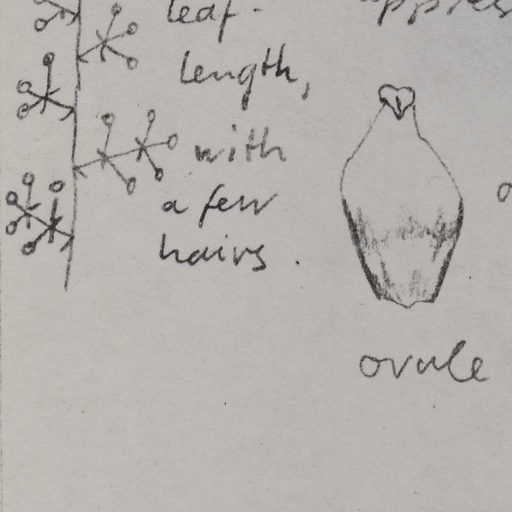 leaf-
length,
with
a few
hairs.
appres
ovule